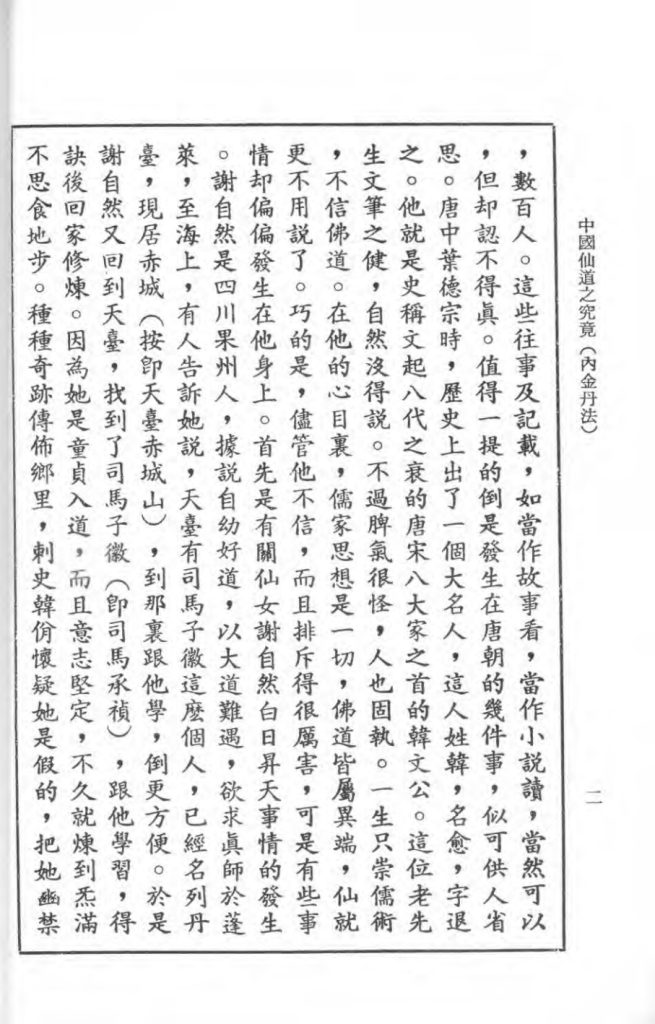 中國仙道之究竟(內金丹法)
二
,數百人。這些往事及記載,如當作故事看,當作小説讀,當然可以
,但却認不得眞。值得一提的倒是發生在唐朝的幾件事,似可供人省
思。唐中葉德宗時,歷史上出了一個大名人,這人姓韓,名愈,字退
之。他就是史稱文起八代之衰的唐宋八大家之首的韓文公。這位老先
生文筆之健,自然沒得説。不過脾氣很怪,人也固執。一生只崇儒術
,不信佛道。在他的心目裏,儒家思想是一切,佛道皆屬異端,仙就
更不用説了。巧的是,儘管他不信,而且排斥得很厲害,可是有些事
情却偏偏發生在他身上。首先是有關仙女謝自然白日昇天事情的發生
。謝自然是四川果州人,據説自幼好道,以大道難遇,欲求眞師於蓬
萊,至海上,有人告訴她説,天臺有司馬子徽這麽個人,已經名列丹
臺,現居赤城(按卽天臺赤城山),到那裏跟他學,倒更方便。於是
謝自然又回到天臺,找到了司馬子徽(卽司馬承禎),跟他學習,得
訣後回家修煉。因為她是童貞入道,而且意志堅定,不久就煉到炁滿
不思食地步。種種奇跡傳佈鄉里,刺史韓佾懷疑她是假的,把她幽禁